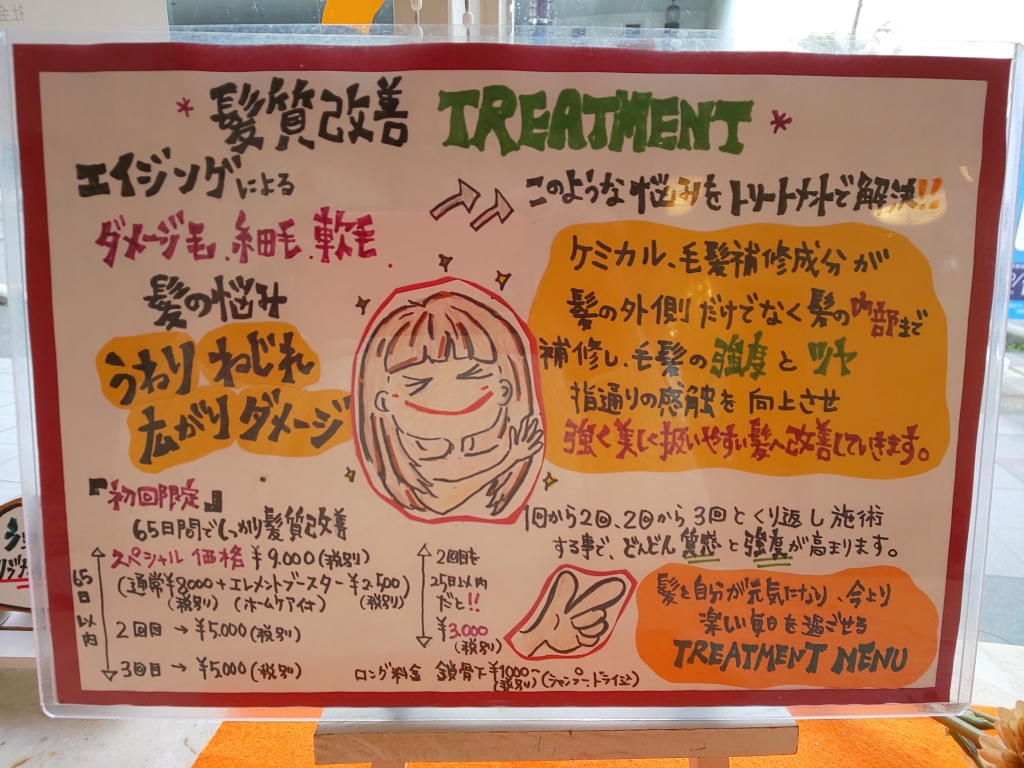 * 髪質改善 TREATMENT *
エイジングによる
ダメージ毛、細毛、軟毛
髪の悩み
うねり ねじれ
広がり ダメージ
このような悩みをトリートメントで解決!!
ケミカル、毛髪補修成分が
髪の外側だけでなく髪の内部まで
補修し、毛髪の強度とツヤ
指通りの感触を向上させ
強く美しく扱いやすい髪へ改善していきます。
『初回限定』
65日間でしっかり髪質改善
スペシャル価格 ¥9.000(税別)
(通常¥8000+エレメントブースター¥2.500)
(税別) (ホームケア付) (税別)
2回目 → ¥5.000(税別)
3回目 → ¥5.000(税別)
65日以内
2回目を
25日以内
だと!!
¥3.000
(税別)
ロング料金 鎖骨下¥1000
(税別)
1回から2回、2回から3回とくり返し施術
する事で、どんどん質感と強度が高まります。
髪を自分が元気になり、今より
楽しい毎日を過ごせる
TREATMENT MENU